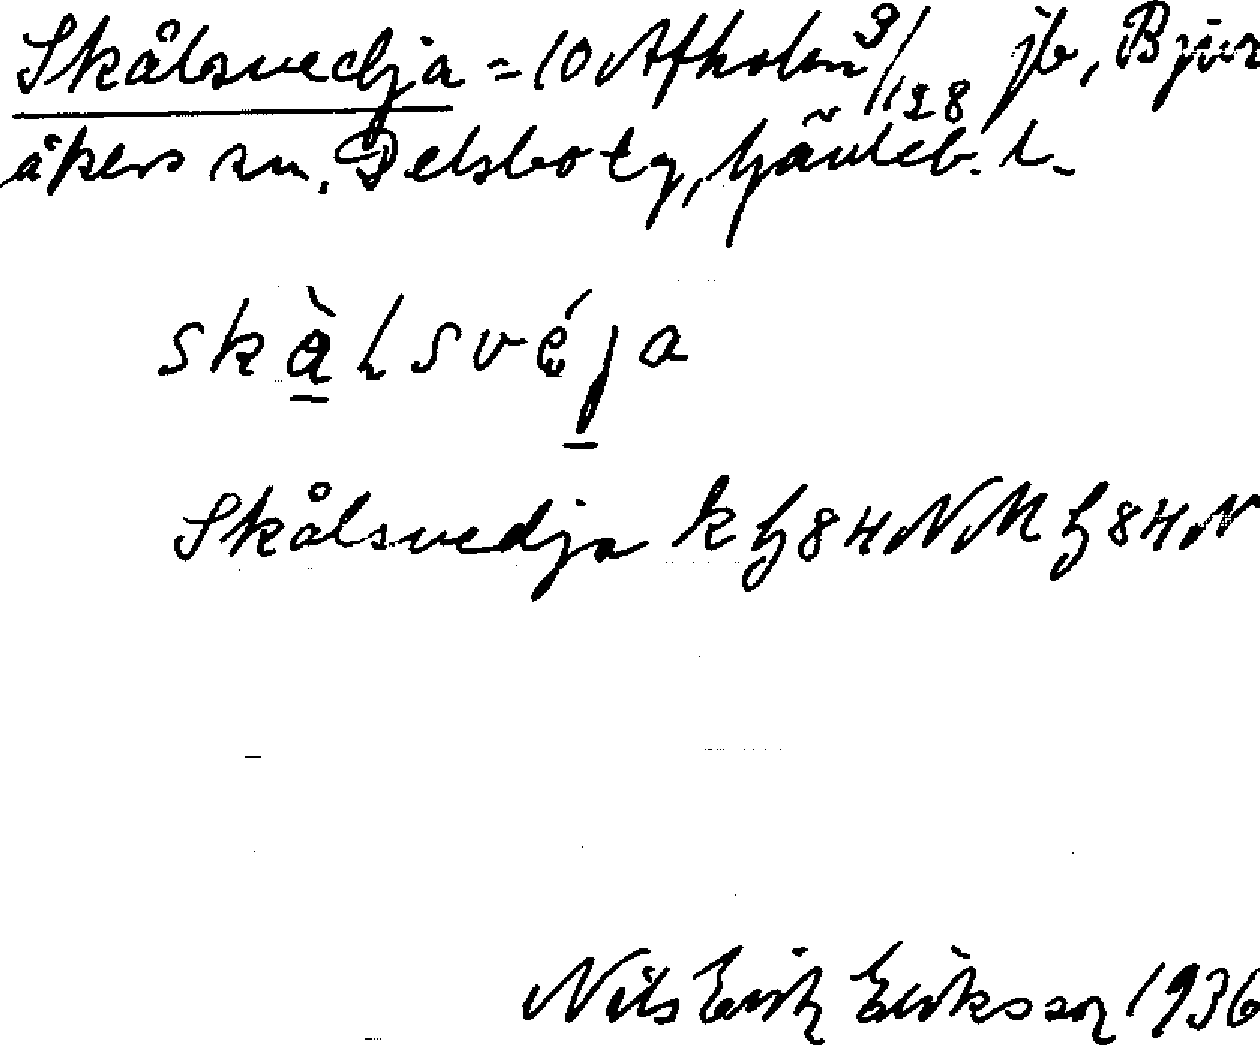 Skålsvedja = 10 Afholm 9/128 jb, Bjur
åkers sn. Delsbo tg, Gävleb. l.
skàlsvéja
Skålsvedja k G84N M G84N
Nils Erik Eriksson 1936